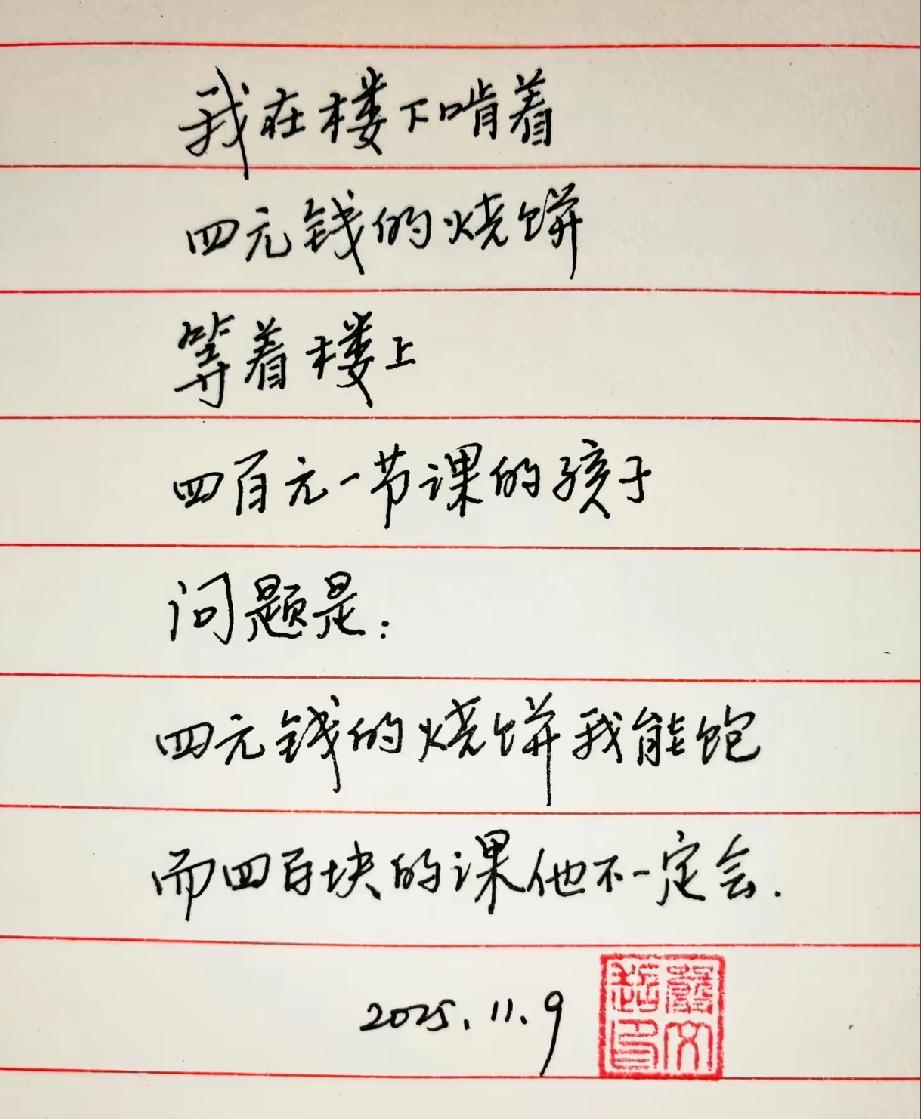 我在楼下啃着
四元钱的烧饼
等着楼上
四百元一节课的孩子
问题是:
四元钱的烧饼我能饱
而四百块的课他不一定会.
2025.11.9